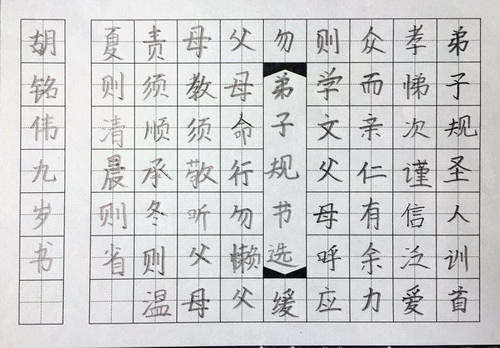 弟子规圣人训首
孝悌次谨信泛爱
众而亲仁有余力
则学文父母呼应
勿
弟子规节选
缓
父母命行勿懒父
母教须敬听父母
责须顺承冬则温
夏则清晨则省
胡铭伟九岁书